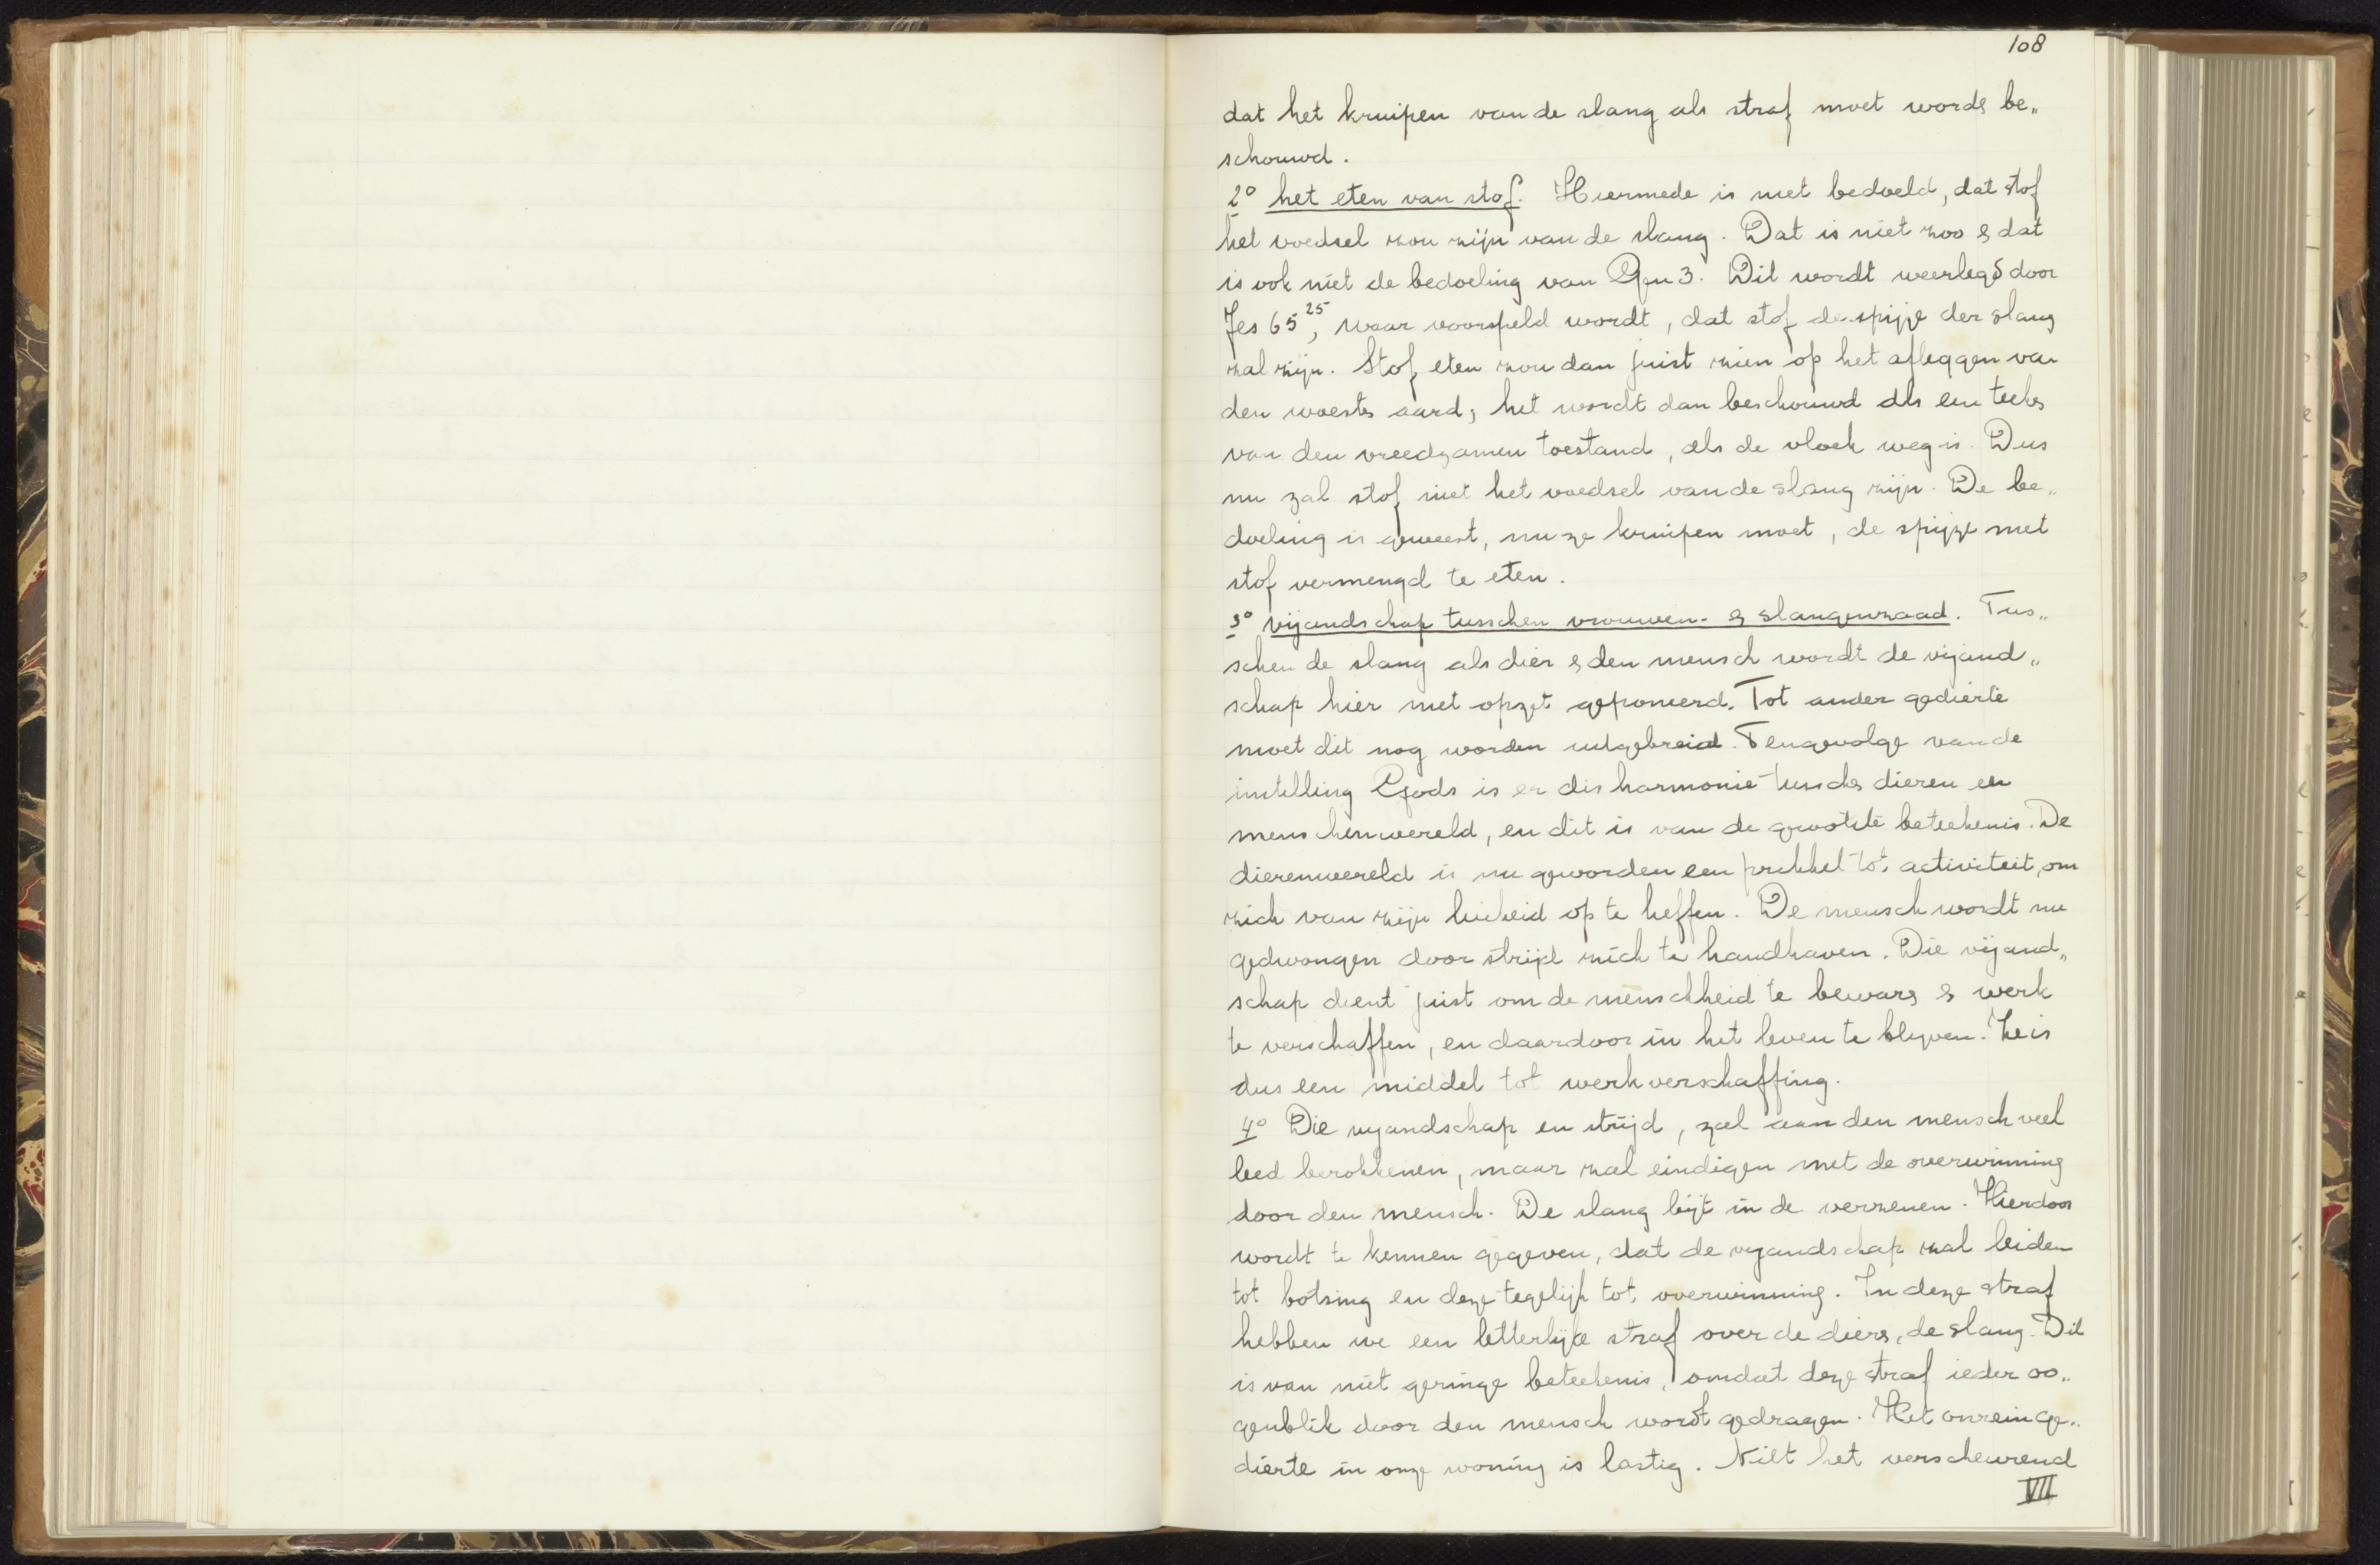 108
dat het kruipen van de slang als straf moet words be„
schouwd.
2° het eten van stof. Hiermede is niet bedoeld, dat stof
het voedsel zou zijn van de slang. Dat is niet zoo & dat
is ook niet de bedoeling van Gen 3. Dit wordt weerlegd door
Jes 65²⁵, waar voorspeld wordt, dat stof de spijze der slang
zal zijn. Stof eten zou dan juist zien op het afleggen van
den woests aard, het wordt dan beschouwd als een teeks
van den vreedzamen toestand, als de vloek weg is. Dus
nu zal stof niet het voedsel van de slang zijn. De be„
doeling is geweest, nu ze kruipen moet, de spijze met
stof vermengd te eten.
3° vijandschap tusschen vrouwen- & slangenzaad. Tus„
schen de slang als dier & den mensch wordt de vijand„
schap hier met opzet geponeerd. Tot ander gedierte
moet dit nog worden uitgebreid. Tengevolge van de
instelling Gods is er disharmonie tusschs dieren en
menschenwereld, en dit is van de grootste beteekenis. De
dierenwereld is nu geworden een prikkel tot activiteit, om
zich van zijn luiheid op te heffen. De mensch wordt nu
gedwongen door strijd zich te handhaven. Die vijand„
schap dient juist om de menschheid te bewars & werk
te verschaffen, en daardoor in het leven te blijven. Ze is
dus een middel tot werkverschaffing.
4° Die vijandschap en strijd, zal aan den mensch veel
leed berokkenen, maar zal eindigen met de overwinning
door den mensch. De slang bijt in de verzenen. Hierdoor
wordt te kennen gegeven, dat de vijandschap zal leiden
tot botsing en deze tegelijk tot overwinning. In deze straf
hebben we een letterlijke straf over de diers, de slang. Dit
is van niet geringe beteekenis, omdat deze straf ieder oo„
genblik door den mensch wordt gedragen. Het onrein ge„
dierte in onze woning is lastig. Niet het verscheurend
VII